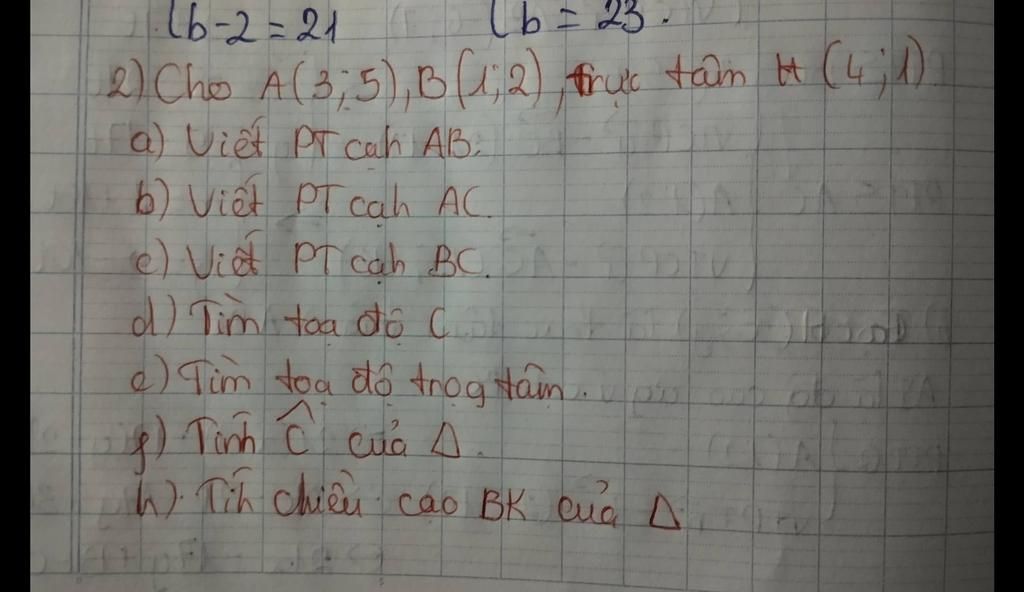 b-2 = 21 b = 23.
2) Cho A(3;5), B(1;2), trực tâm H (4;1)
a) Viết PT cạh AB.
b) Viết PT cạh AC.
c) Viết PT cạh BC.
d) Tìm toạ độ C
e) Tìm toạ độ trọg tâm.
f) Tính Ĉ của Δ.
h) Tíh chiều cao BK của Δ